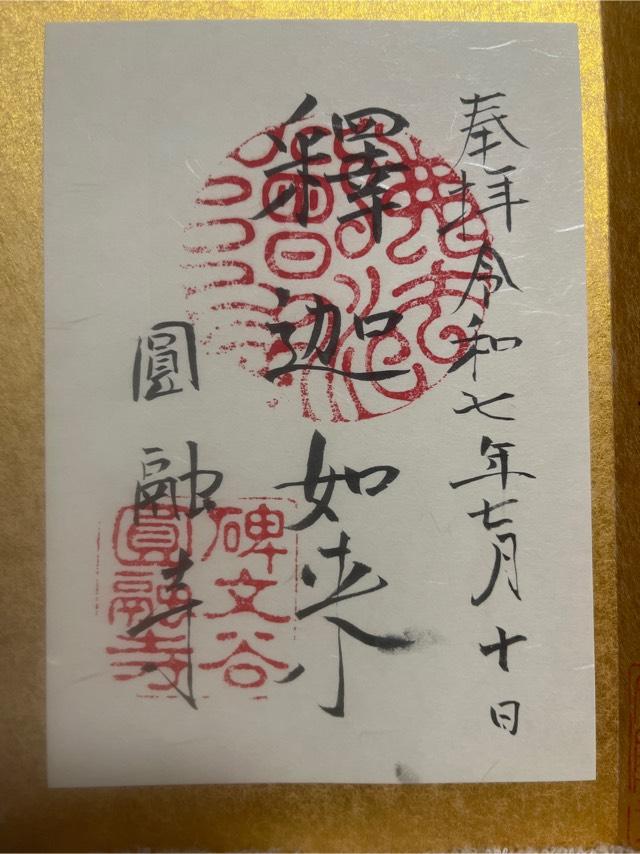 奉拝令和七年七月十日
釋迦如来
圓融寺
碑文谷
圓融寺